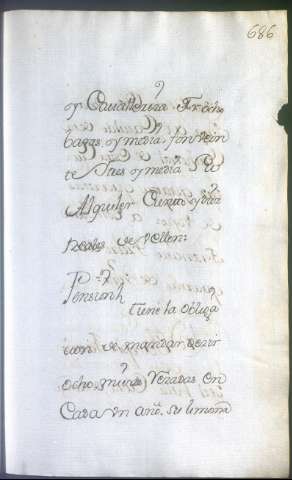 686
y Cavalleriza. Tr ocho
baras, y media, fon. vein
te y tres y media. Su
Alquiler Cuatro
Reales de Vellon:
Pension
tiene la obliga
cion de mandar decir
ocho misas Rezadas en
Cada un año. su limosna